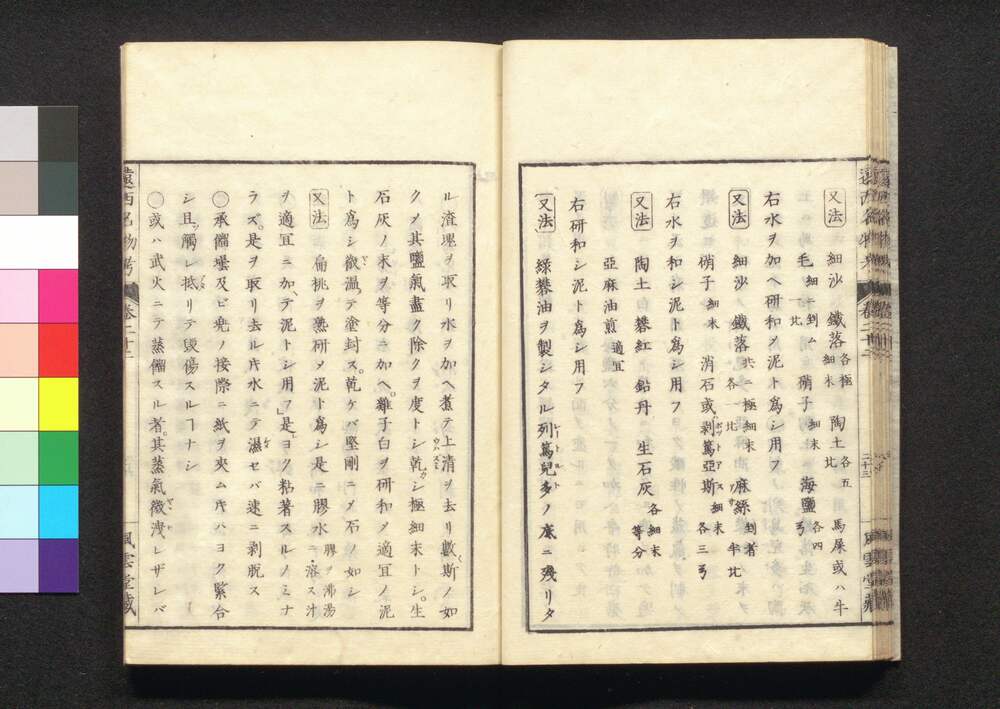 又法 細沙 鐵落 各極細末 陶土 各五比 馬屎或ハ牛
毛 細ニ剉ム一比 硝子 細末 海鹽 各四弓
右水ヲ加ヘ研和メ泥ト爲シ用フ
又法 細沙 鐵落 共ニ極細末各一比 麻絲 剉者半比
硝子 細末 消石或剥篤亞斯 細末各三弓
右水ヲ和シ泥ト爲シ用フ
又法 陶土 礬紅 鉛丹 生石灰 各細末等分
亞麻油煎 適宜
右研和シ泥ト爲シ用フ
又法 綠礬油ヲ製シタル列篤兒多ノ底ニ殘リタ
ル渣滓ヲ取リ水ヲ加ヘ煮テ上清ヲ去リ數斯ノ如
クメ其鹽氣盡ク除クヲ度トシ乾シ極細末トシ生
石灰ノ末ヲ等分ニ加ヘ雞子白ヲ研和メ適宜ノ泥
ト爲シ微溫テ塗封ス乾ケバ堅剛ニメ石ノ如シ
又法 扁桃ヲ熟研メ泥ト爲シ是ニ膠水 膠ヲ沸湯ニ溶ス汁
ヲ適宜ニ加テ泥トシ用フ是ヨク粘著スルノミナ
ラズ是ヲ取リ去ル片水ニテ濕セバ速ニ剥脱ス
○承餾壜及ビ兠ノ接際ニ紙ヲ夾ム片ハヨク緊合
シ且觸レ抵リテ毀傷スルヿナシ
○或ハ武火ニテ蒸餾スル者其蒸氣微洩レザレバ
遠西名物考 卷二十二
風雲堂藏
二十三